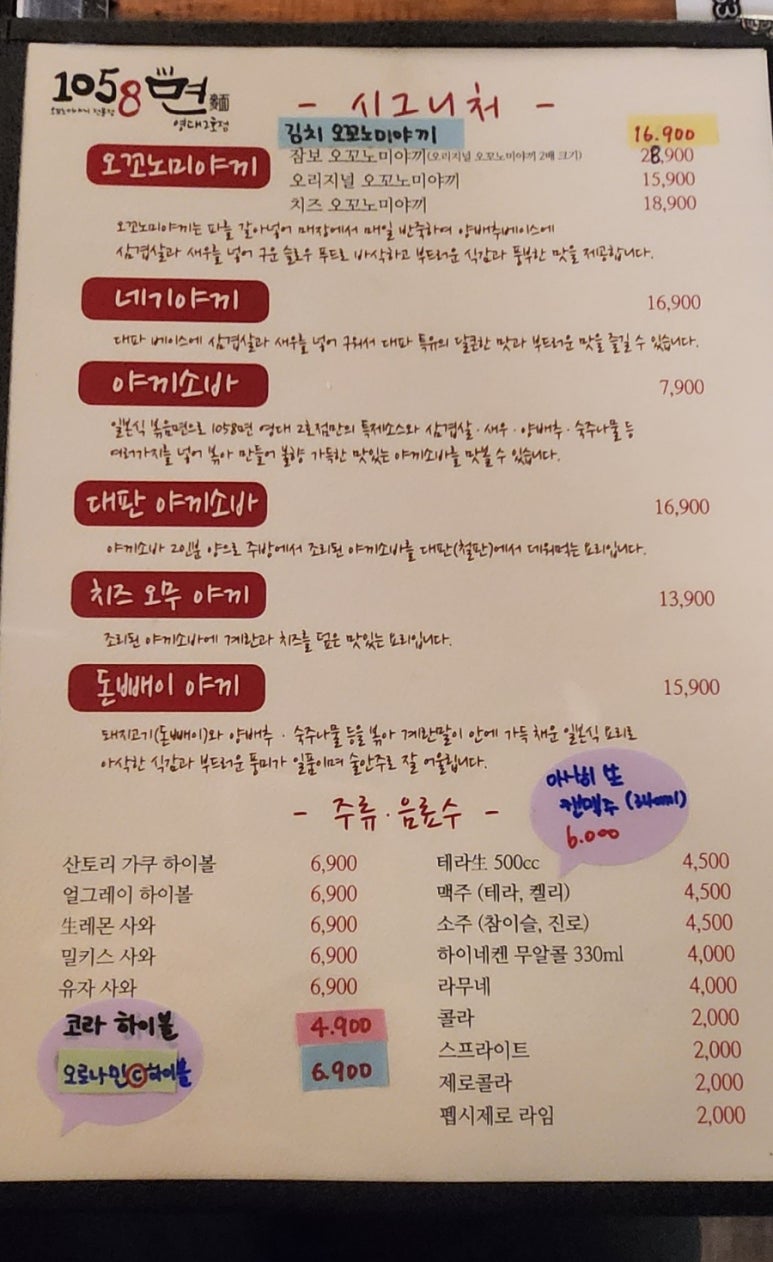 1058 면 麵
오꼬노미야끼 전문점
영대2호점
- 시그니처 -
김치 오꼬노미야끼 16.900
오꼬노미야끼
잠보 오꼬노미야끼(오리지널 오꼬노미야끼 2배 크기) 28,900
오리지널 오꼬노미야끼 15,900
치즈 오꼬노미야끼 18,900
오꼬노미야끼는 파를 갈아넣어 매장에서 매일 반죽하여 양배추베이스에
삼겹살과 새우를 넣어 구운 슬로우 푸드로 바삭하고 부드러운 식감과 풍부한 맛을 제공합니다.
네기야끼 16,900
대파 베이스에 삼겹살과 새우를 넣어 구워서 대파 특유의 달콘한 맛과 부드러운 맛을 즐길 수 있습니다.
야끼소바 7,900
일본식 볶음면으로 1058면 영대 2호점만의 특제소스와 삼겹살 · 새우 · 양배추 · 숙주나물 등
여러가지를 넣어 볶아 만들어 불향 가득한 맛있는 야끼소바를 맛볼 수 있습니다.
대판 야끼소바 16,900
야끼소바 2인분 양으로 주방에서 조리된 야끼소바를 대판(철판)에서 데워먹는 요리입니다.
치즈 오무 야끼 13,900
조리된 야끼소바에 계란과 치즈를 덮은 맛있는 요리입니다.
돈빼이 야끼 15,900
돼지고기(돈빼이)와 양배추 · 숙주나물 등을 볶아 계란말이 안에 가득 채운 일본식 요리로
아삭한 식감과 부드러운 풍미가 일품이며 술안주로 잘 어울립니다.
아사히 生
캔맥주 (340ml)
6.000
- 주류 · 음료수 -
산토리 가쿠 하이볼 6,900
얼그레이 하이볼 6,900
生레몬 사와 6,900
밀키스 사와 6,900
유자 사와 6,900
코라 하이볼 4.900
오로나민ⓒ하이볼 6.900
테라生 500cc 4,500
맥주 (테라, 켈리) 4,500
소주 (참이슬, 진로) 4,500
하이네켄 무알콜 330ml 4,000
라무네 4,000
콜라 2,000
스프라이트 2,000
제로콜라 2,000
펩시제로 라임 2,000